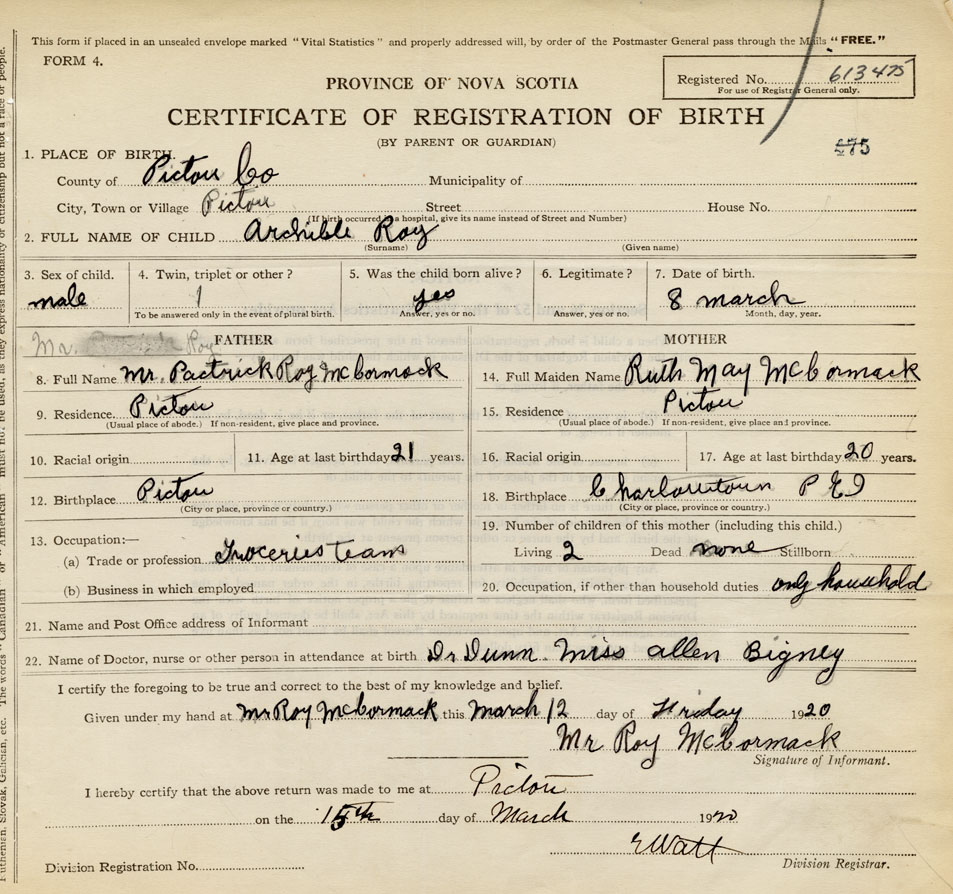 This form if placed in an unsealed envelope marked "Vital Statistics" and properly addressed will, by order of the Postmaster General pass through the Mails "FREE."
FORM 4.
Registered No. 613475
For use of Registrar General only.
PROVINCE OF NOVA SCOTIA
CERTIFICATE OF REGISTRATION OF BIRTH
(BY PARENT OR GUARDIAN)
475
1. PLACE OF BIRTH.
County of Pictou Co Municipality of
City, Town or Village Pictou Street House No.
(If birth occurred in a hospital, give its name instead of Street and Number)
2. FULL NAME OF CHILD Archible Roy
(Surname) (Given name)
3. Sex of child. 4. Twin, triplet or other? 5. Was the child born alive? 6. Legitimate? 7. Date of birth.
male 1 yes 8 march
To be answered only in the event of plural birth. Answer, yes or no. Answer, yes or no. Month, day, year.
Mr. Roy FATHER MOTHER
8. Full Name Mr. Pactrick Roy McCormack 14. Full Maiden Name Ruth May McCormack
9. Residence. Pictou 15. Residence Pictou
(Usual place of abode.) If non-resident, give place and province. (Usual place of abode.) If non-resident, give place and province.
10. Racial origin 11. Age at last birthday 21 years. 16. Racial origin 17. Age at last birthday 20 years.
12. Birthplace Pictou 18. Birthplace Charlowtown P E I
(City or place, province or country.) (City or place, province or country.)
13. Occupation:— 19. Number of children of this mother (including this child.)
(a) Trade or profession Groceries team Living 2 Dead none Stillborn
(b) Business in which employed 20. Occupation, if other than household duties only household
21. Name and Post Office address of Informant
22. Name of Doctor, nurse or other person in attendance at birth Dr Dunn Miss allen Bigney
I certify the foregoing to be true and correct to the best of my knowledge and belief.
Given under my hand at Mr Roy McCormack this March 12 day of Friday 1920
Mr Roy McCormack
Signature of Informant.
I hereby certify that the above return was made to me at Pictou
on the 15th day of March 1920
E Watt
Division Registration No. Division Registrar.